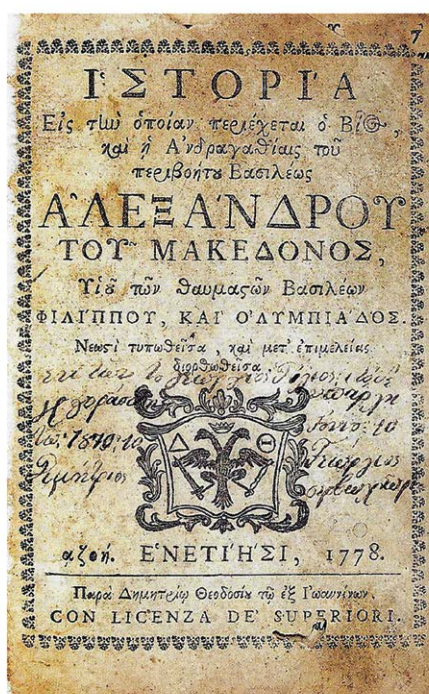 7
ἹΣΤΟΡΊΑ
Εἰς τὴν ὁποίαν περιέχεται ὁ Βίος,
καὶ ἡ Ἀνδραγαθίαις τοῦ
περιβοήτου Βασιλέως
ἈΛΕΞΆΝΔΡΟΥ
ΤΟΥ͂ ΜΑΚΕΔΌΝΟΣ,
Υἱοῦ τῶν θαυμαστῶν Βασιλέων
ΦΙΛΊΠΠΟΥ, ΚΑῚ ὈΛΥΜΠΙΆΔΟΣ.
Νεωστὶ τυπωθεῖσα, καὶ μετ' ἐπιμελείας
διορθωθεῖσα.
Δ Θ
Γεώργιος
αψοή. ἘΝΕΤΊῌΣΙ, 1778.
Παρὰ Δημητρίῳ Θεοδοσίου τῷ ἐξ Ἰωαννίνων.
CON LICENZA DE' SUPERIORI.